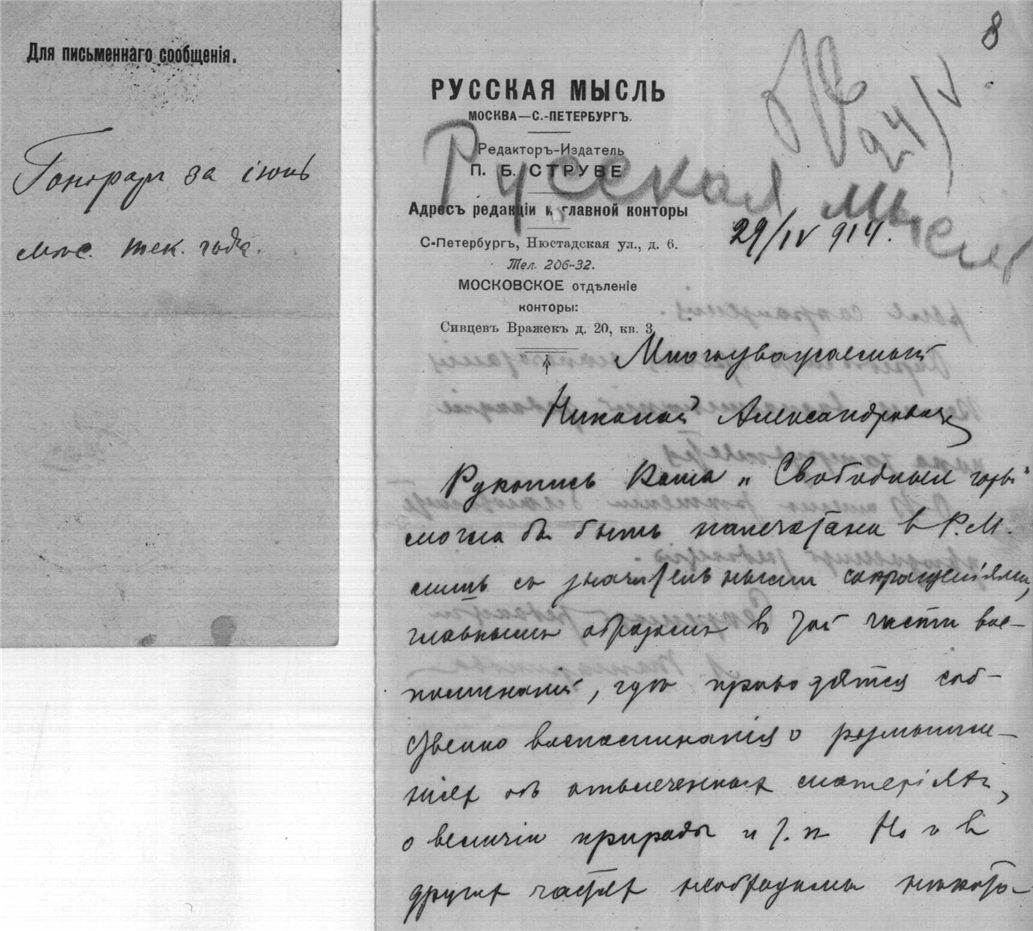 Для письменнаго сообщенія.
Гонорар за іюнь
мѣс. тек. года.
8
РУССКАЯ МЫСЛЬ
МОСКВА—С.-ПЕТЕРБУРГЪ.
Редакторъ-Издатель
П. Б. СТРУВЕ
Адресъ редакціи и главной конторы
С-Петербургъ, Нюстадская ул., д. 6.
Тел. 206-32.
МОСКОВСКОЕ отдѣленіе
конторы:
Сивцевъ Вражекъ д. 20, кв. 3
24/V
Русская мысль
29/IV 914.
Многоуважаемый
Николай Александрович
Рукопись Ваша „Свободныя горы
могла бы быть напечатана в Р.М.
лишь со значительными сокращеніями,
главным образом в той части вос-
поминаній, гдѣ приводятся соб-
ственно воспоминанія о размышле-
ніях об отвлеченных матеріях,
о величіи природы и т.п. Но и в
других частях необходимы некото-